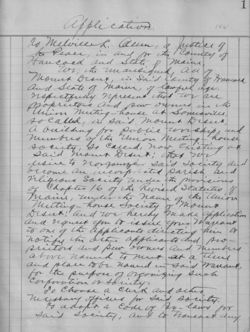 1
Application
To Melville L. Allen, a Justice of
the Peace in and for the County of
Hancock and State of Maine,
We, the undersigned, all of
Mount Desert, in said County of Hancock
and State of Maine, of lawful age,
respectfully represent that we are
proprietors and pew owners in the
Union Meeting house at Somesville
so called, in said Mount Desert,
a building for public worship, and
members of the Union Meeting House
Society, so called, now existing at
said Mount Desert, that we
desire to reorganize said Society and
become an incorporated Parish and
religious Society under the provisions
of Chapter 16 of the Revised Statutes of
Maine, under the name of the Union
Meeting house Society of Mount
Desert and we hereby make application
and request you to issue your Warrant
to one of the applicants directing him to
notify the other applicants and pro-
prietors and pew owners and members
above named to meet at a time
and place to be named in said Warrant
for the purpose of organizing such
Corporation or Society.
To choose a Clerk and other
necessary officers for said Society.
To adopt a Code of By-laws for
said Society, and to transact any